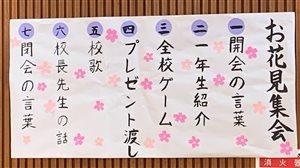 お花見集会
一 開会の言葉
二 一年生紹介
三 全校ゲーム
四 プレゼント渡し
五 校歌
六 校長先生の話
七 閉会の言葉
消火器